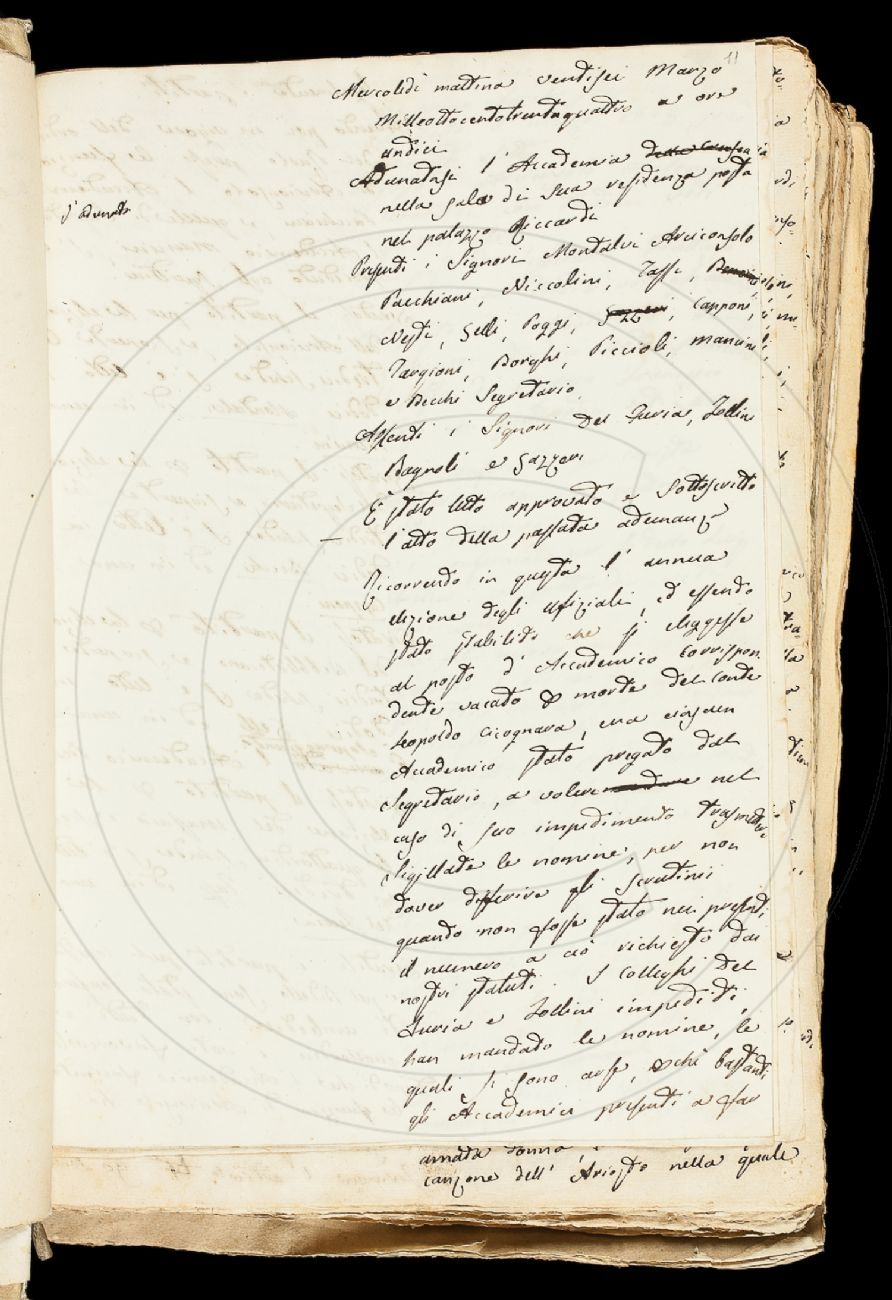 11
Mercoledì mattina ventisei Marzo
Milleottocentotrentaquattro a ore
undici
Adunatasi l'Accademia della Crusca
nella sala di sua residenza posta
nel palazzo Riccardi
Presenti i Signori Montalvi Arciconsolo
Pacchiani, Niccolini, Tassi,
Nesti, Gelli, Poggi, Gazzeri, Capponi,
Targioni, Borghi, Piccioli, Mancini
e Becchi Segretario.
Assenti i Signori Del Furia, Zollini
Bagnoli e Gazzeri
È stato letto approvato e sottoscritto
l'atto della passata adunanza
Ricorrendo in questa l'annua
elezione degli ufiziali, ed essendo
stato stabilito che si eleggesse
al posto d'Accademico Corrispon
dente vacato per morte del Conte
Leopoldo Cicognara, era ciascun
Accademico stato pregato dal
Segretario, a volere mandare nel
caso di suo impedimento trasmettere
sigillate le nomine, per non
dover differire gli scrutinii
quando non fosse stato nei presenti
il numero a ciò richiesto dai
nostri statuti. I Colleghi Del
Furia e Zollini impediti,
han mandato le nomine, le
quali si sono arse, perchè bastanti
gli Accademici presenti a far
amata donna,
canzone dell'Ariosto nella quale